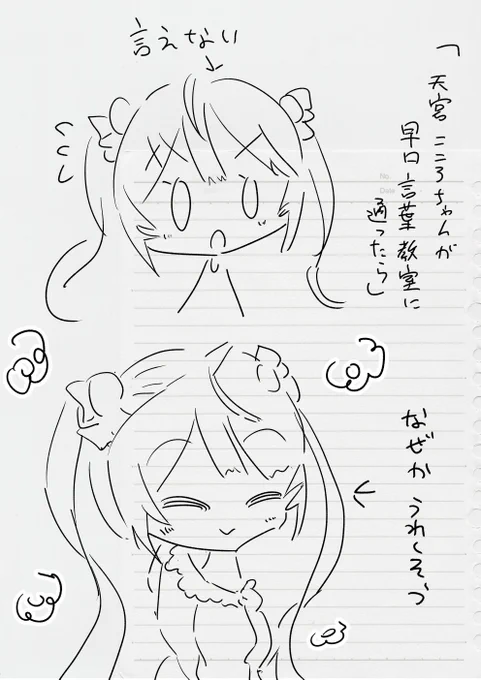 「天宮こころちゃんが
早口言葉教室に
通ったら」
言えない
なぜかうれしそう
No.
Date